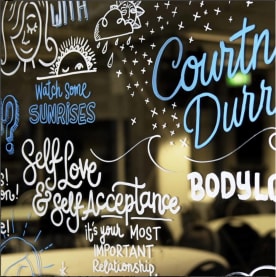 WITH
Watch Some
SUNRISES
?
Self Love
& Self Acceptance
it's your MOST
IMPORTANT
Relationship.
Courtn
Durr
BODYLO